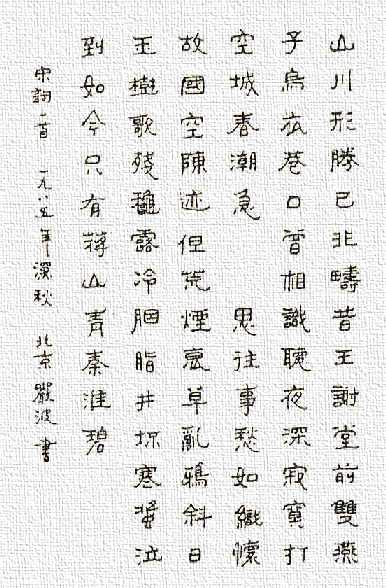 山川形勝已非疇昔王謝堂前雙燕
子烏衣巷口曾相識聽夜深寂寞打
空城春潮急 思往事愁如織懷
故國空陳迹但荒煙衰草亂鴉斜日
玉樹歌殘龝露冷胭脂井壞寒螿泣
到如今只有蔣山青秦淮碧
宋詞一首 一九八五年深秋 北京 嚴波書